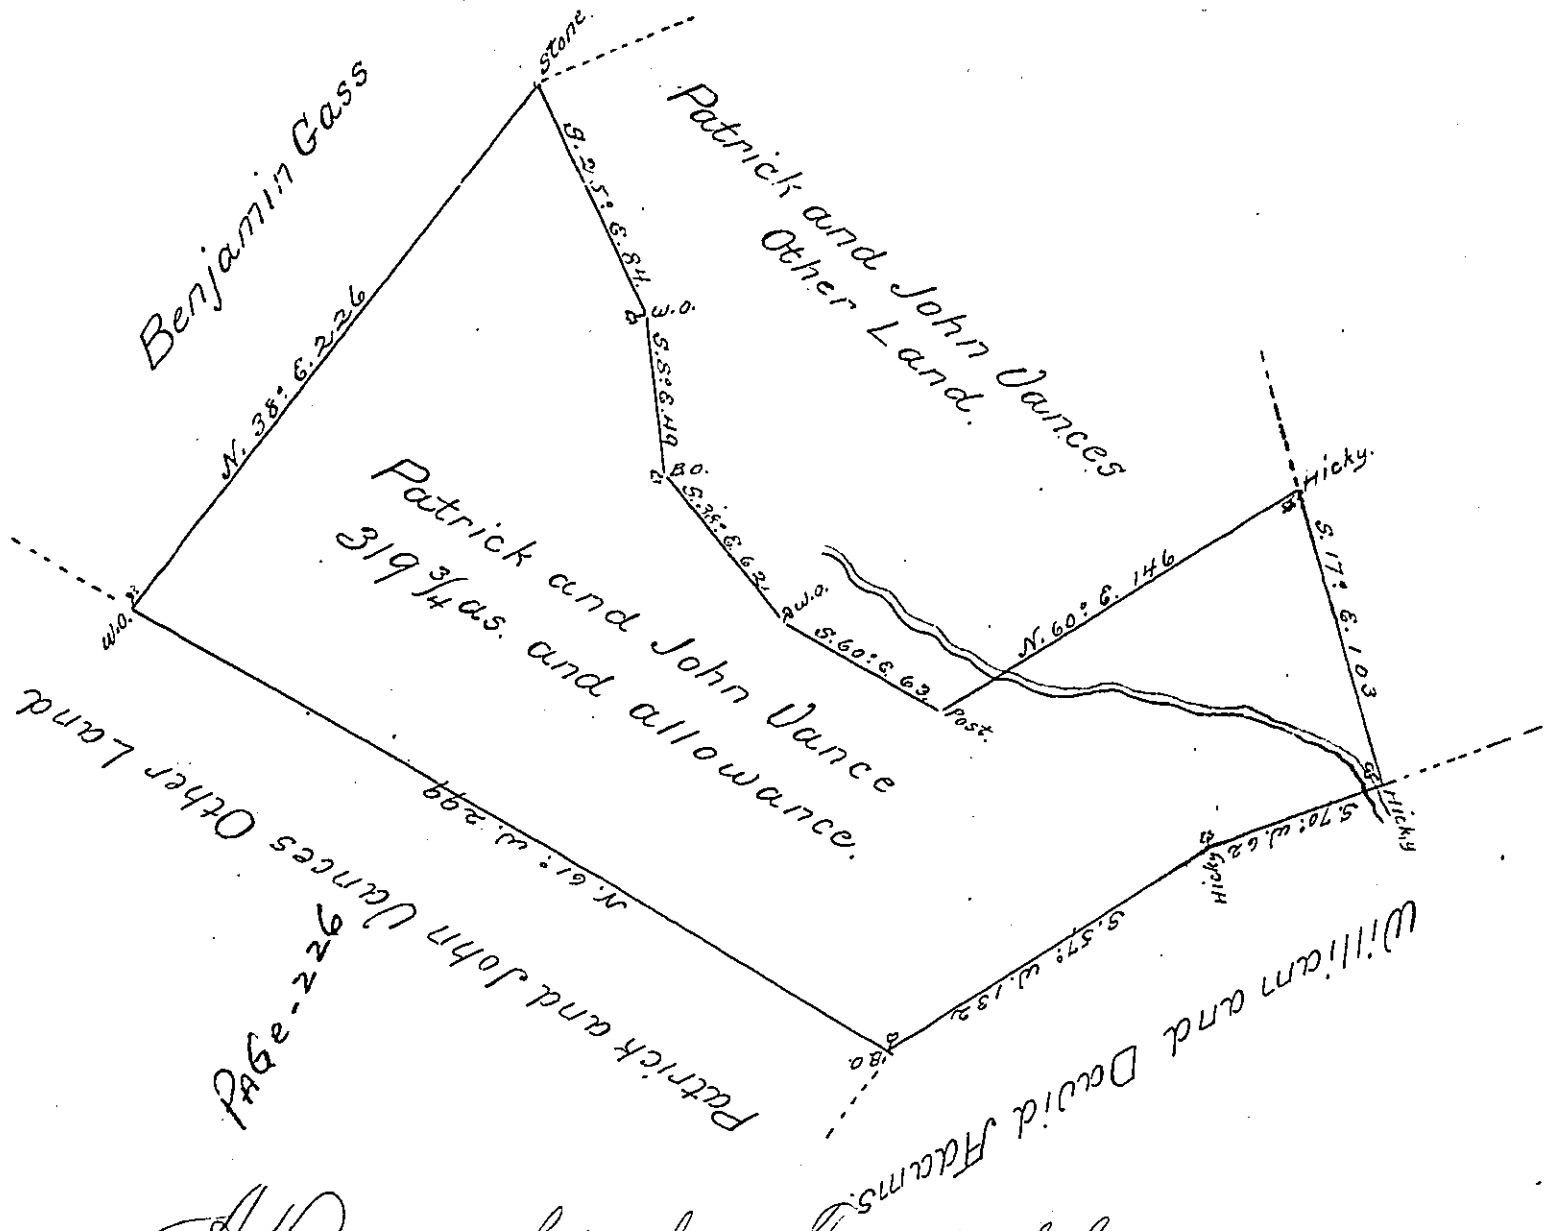 Stone.
Benjamin Gass
Patrick and John Vances
Other Land.
S. 25° E. 84.
N. 38° E. 226
W.O.
S. 5° E. 49
B.O.
S. 38° E. 62.
W.O.
S. 60° E. 63.
Post.
N. 60° E. 146
Hicky.
S. 17° E. 103
Hicky
S. 70° W. 62
Hicky
S. 57° W. 132
B.O.
N. 61° W. 299
W.O.
Patrick and John Vance
319 3/4 as. and allowance.
Patrick and John Vances Other Land
William and David Adams.
PAGe-226